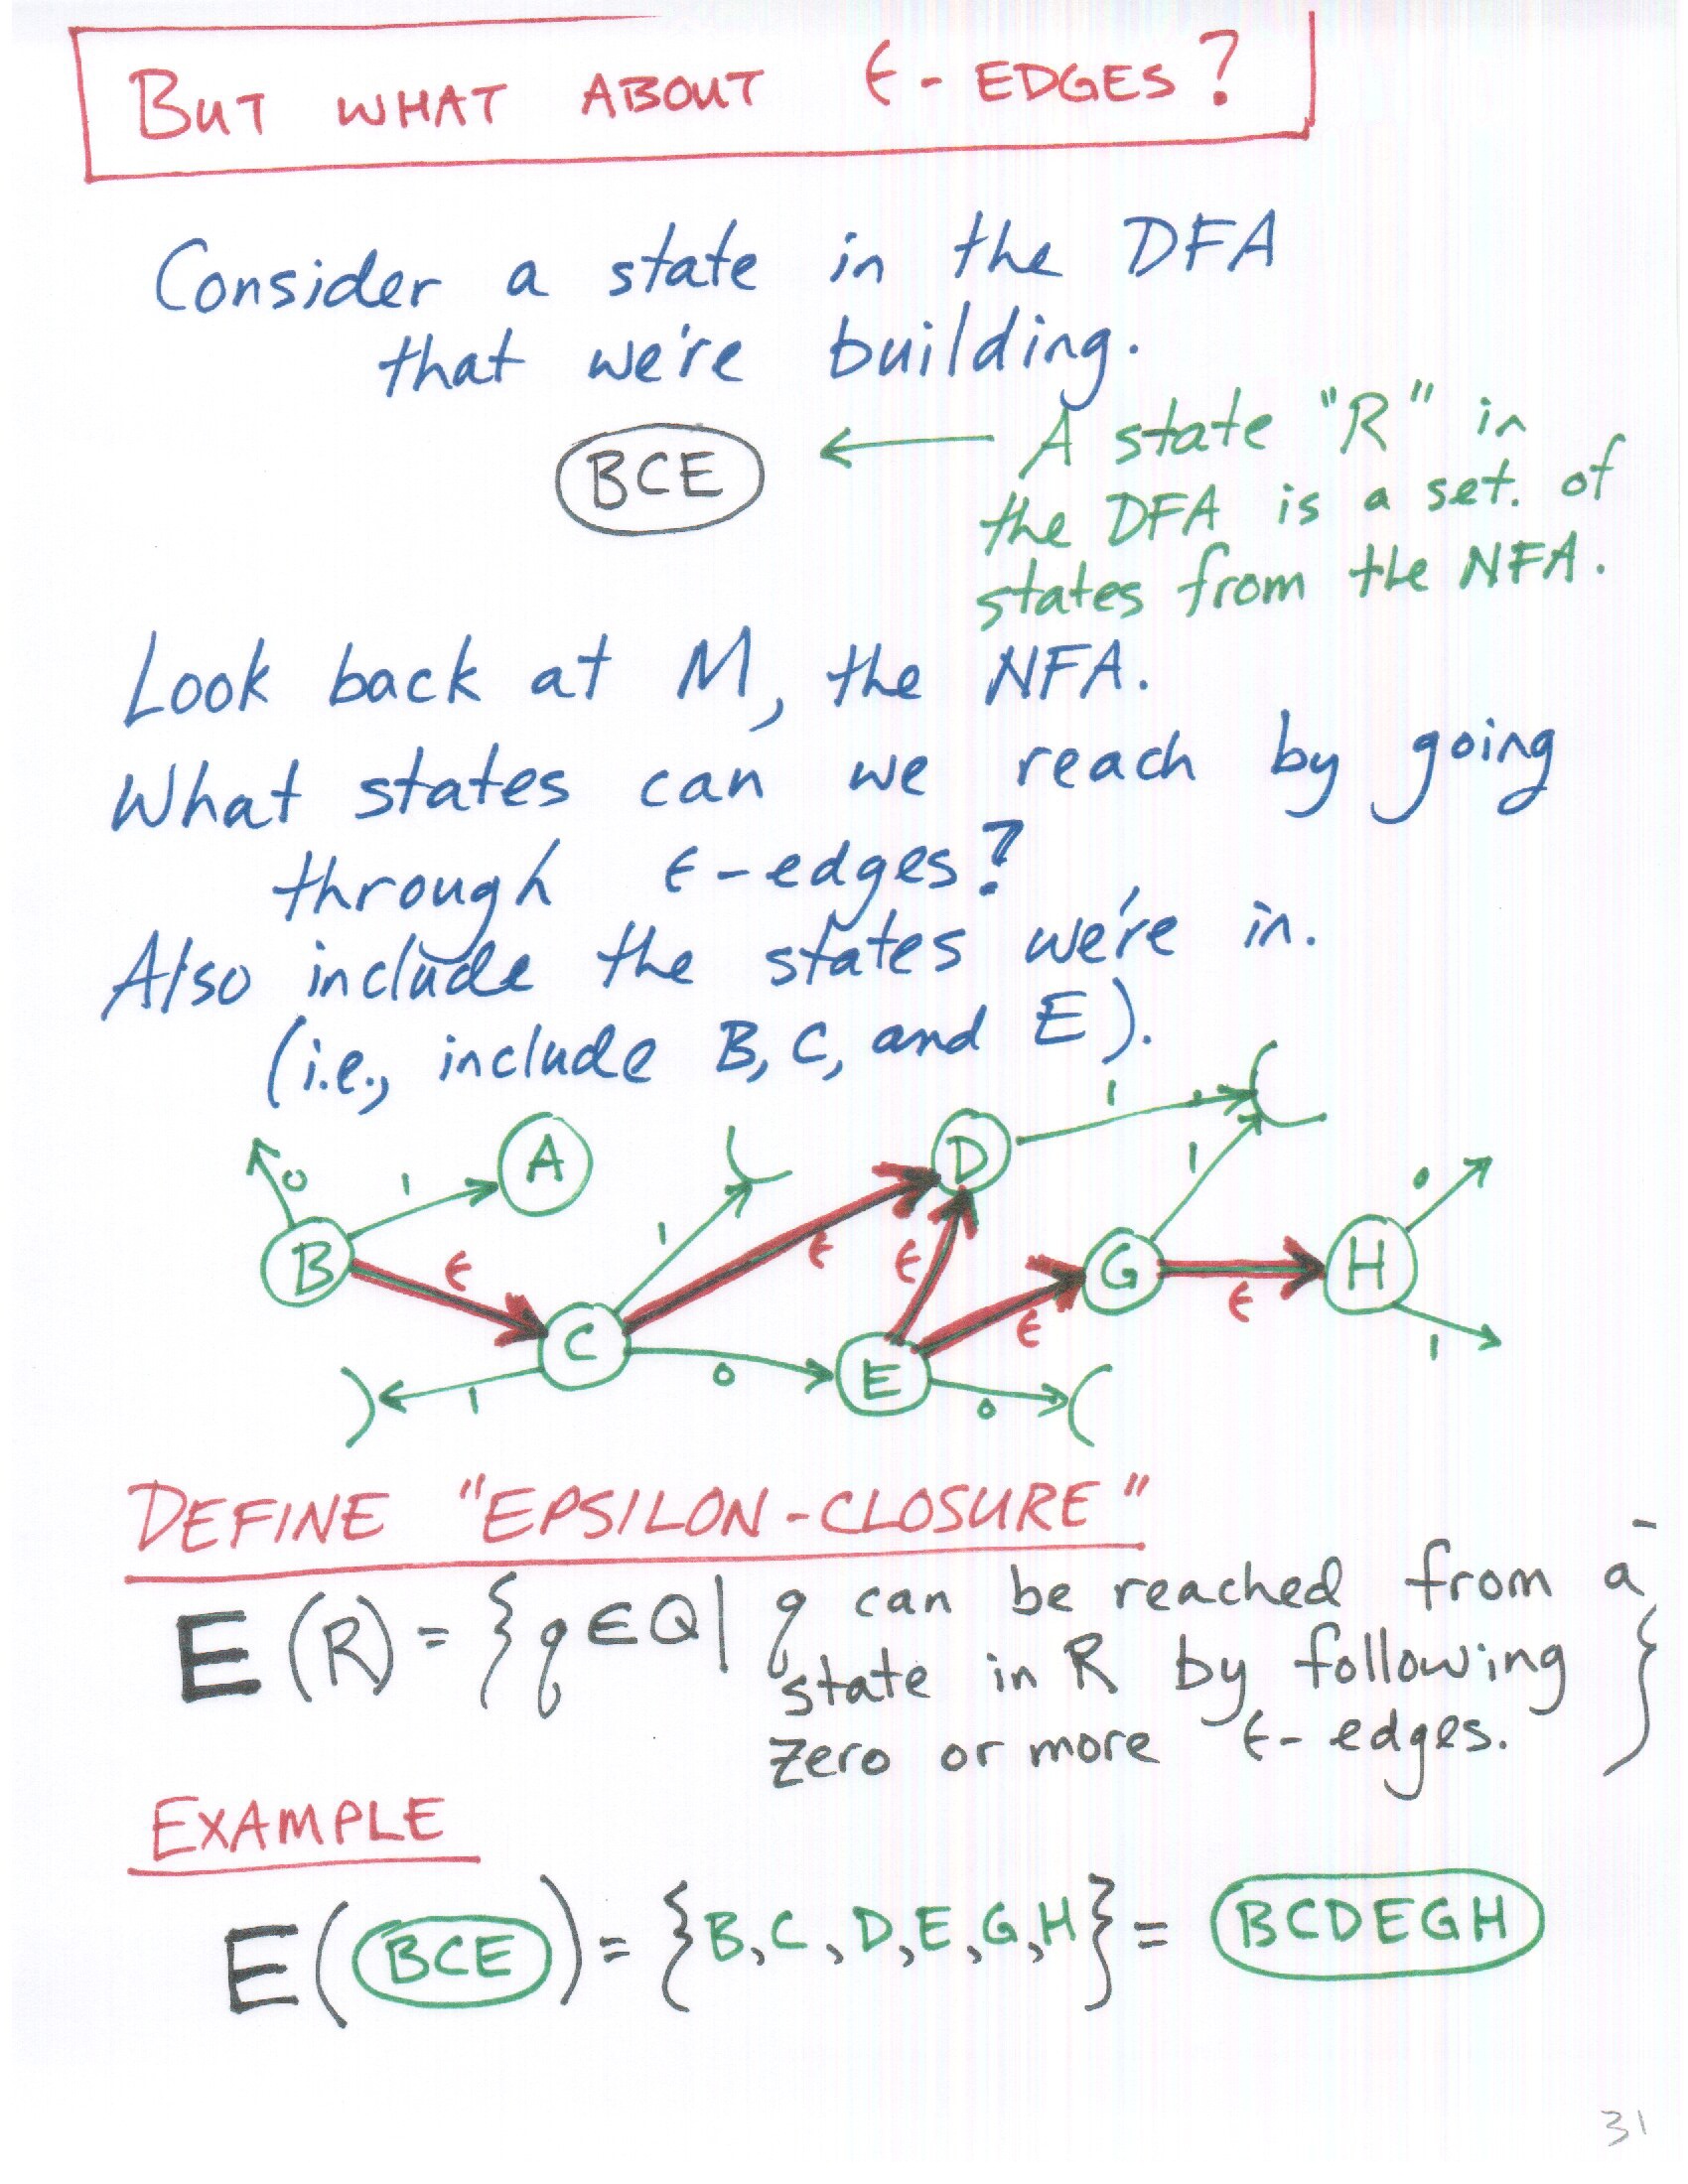 BUT WHAT ABOUT ϵ-EDGES?
Consider a state in the DFA
that we're building.
BCE ← A state "R" in
the DFA is a set. of
states from the NFA.
Look back at M, the NFA.
What states can we reach by going
through ϵ-edges?
Also include the states we're in.
(i.e., include B, C, and E).
1
0 1 A 1 D 1 0
B ϵ ϵ ϵ G ϵ H
C 0 E ϵ 1
1 0
DEFINE "EPSILON-CLOSURE"
E(R) = {q ∈ Q | q can be reached from a
state in R by following
zero or more ϵ-edges. }
EXAMPLE
E(BCE) = {B,C,D,E,G,H} = BCDEGH
31